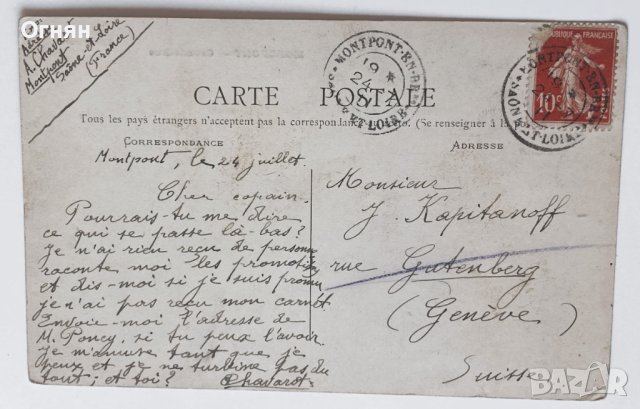 Огнян
A. Chavarot
Montpont
Saône-et-Loire
(France)
MONTPONT-EN-BR
19 *
24
SAONE-ET-LOIRE
RÉPUBLIQUE FRANÇAISE
10c
CARTE POSTALE
Tous les pays étrangers n'acceptent pas la correspondance au (Se renseigner à la
CORRESPONDANCE
ADRESSE
Montpont, le 24 juillet.
Cher copain.
Pourrais-tu me dire
ce qui se passe là-bas?
Je n'ai rien reçu de personne
raconte moi les promotions
et dis-moi si je suis promu
je n'ai pas reçu mon carnet
Envoie-moi l'adresse de
M. Poncy, si tu peux l'avoir.
Je m'amuse tant que je
peux et je ne turbine pas du
tout; et toi? Chavarot
Monsieur
J. Kapitanoff
rue Gutenberg
(Genève)
Suisse
BAZAR.BG